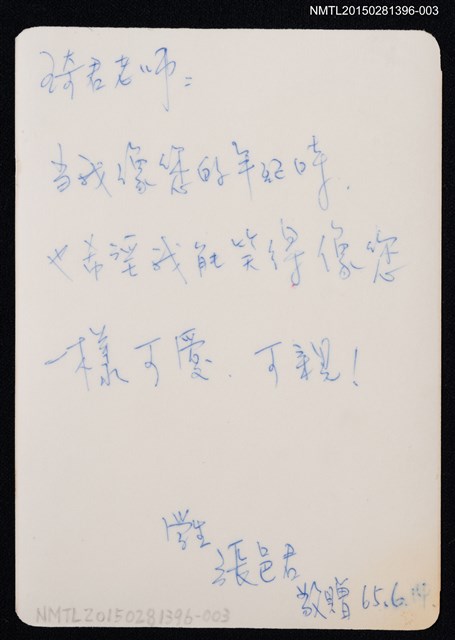 NMTL20150281396-003
琦君老师：
当我像您的年纪時，
也希望我能笑得像您
一樣可愛、可親！
学生
張邑君
敬贈 65.6.
NMTL20150281396-003